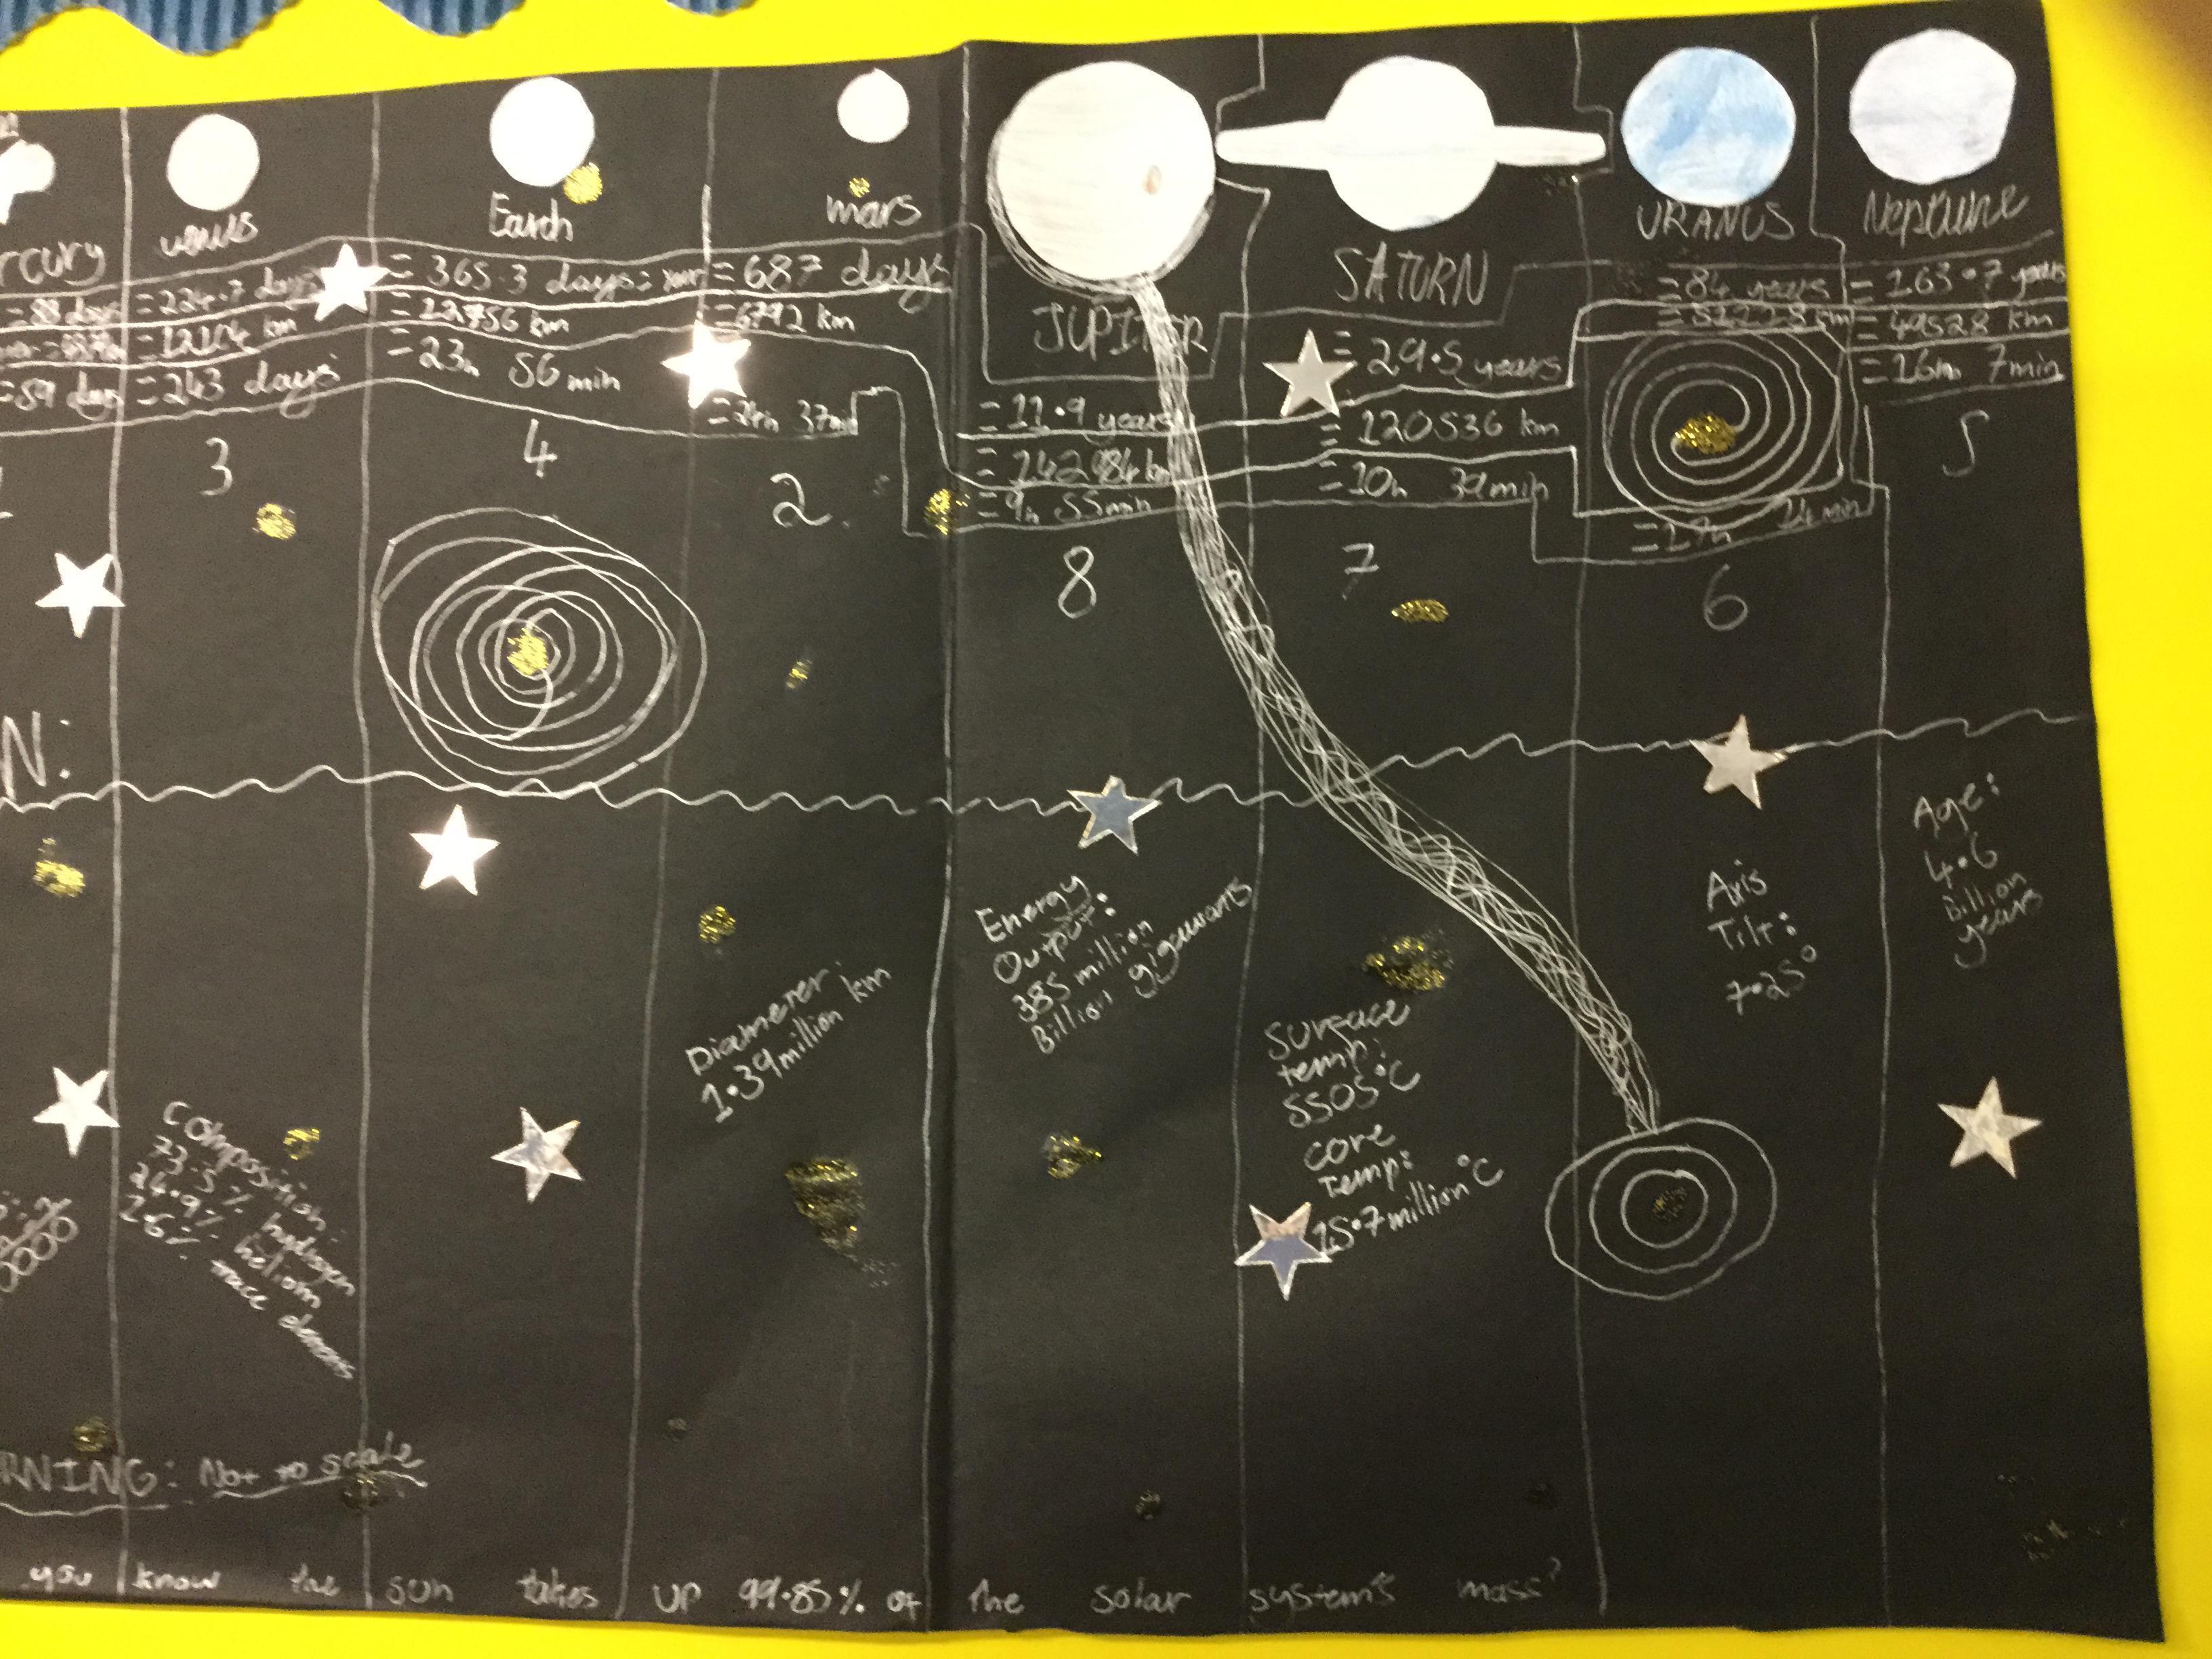 rcury
venus
Earth
mars
JUPITER
SATURN
URANUS
Neptune
= 88 days
= 224.7 days
= 365.3 days = year
= 687 days
= 11.9 years
= 29.5 years
= 84 years
= 163.7 years
= 12104 km
= 12756 km
= 6792 km
= 142984 km
= 120536 km
= 49528 km
= 59 days
= 243 days
- 23h 56min
= 24h 37min
= 9h 55min
= 10h 39min
= 17h 14min
= 16h 7min
3
4
2
8
7
6
5
N:
Composition:
73.5% hydrogen
24.9% helium
trace
Diameter:
1.39 million km
Energy
Output:
385 million
Billion gigawatts
Surface
temp:
5505°C
core
Temp:
15.7 million °C
Axis
Tilt:
7.25°
Age:
4.6
Billion
years
RNING: Not to scale
you know the sun takes up 99.85% of the solar system's mass?